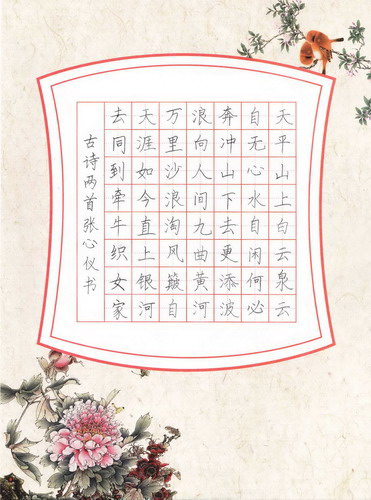 天平山上白云泉云
自无心水自闲何必
奔冲山下去更添波
浪向人间九曲黄河
万里沙浪淘风簸自
天涯如今直上银河
去同到牵牛织女家
古诗两首张心仪书